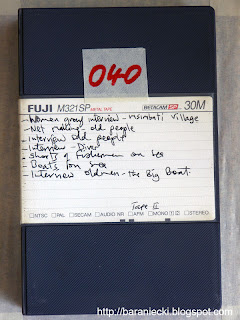 040
FUJI M321SP METAL TAPE BETACAM SP 30M
- Women group interview - msimbati village
- Net making - old people
- Interview old people
- Interview - Diver
- Shorts of fishermen on sea
- Boats on sea
- Interview oldmen - the Big Boat.
Tape II
NTSC PAL SECAM AUDIO NR AFM MONO 1 2 STEREO
http://baraniecki.blogspot.com